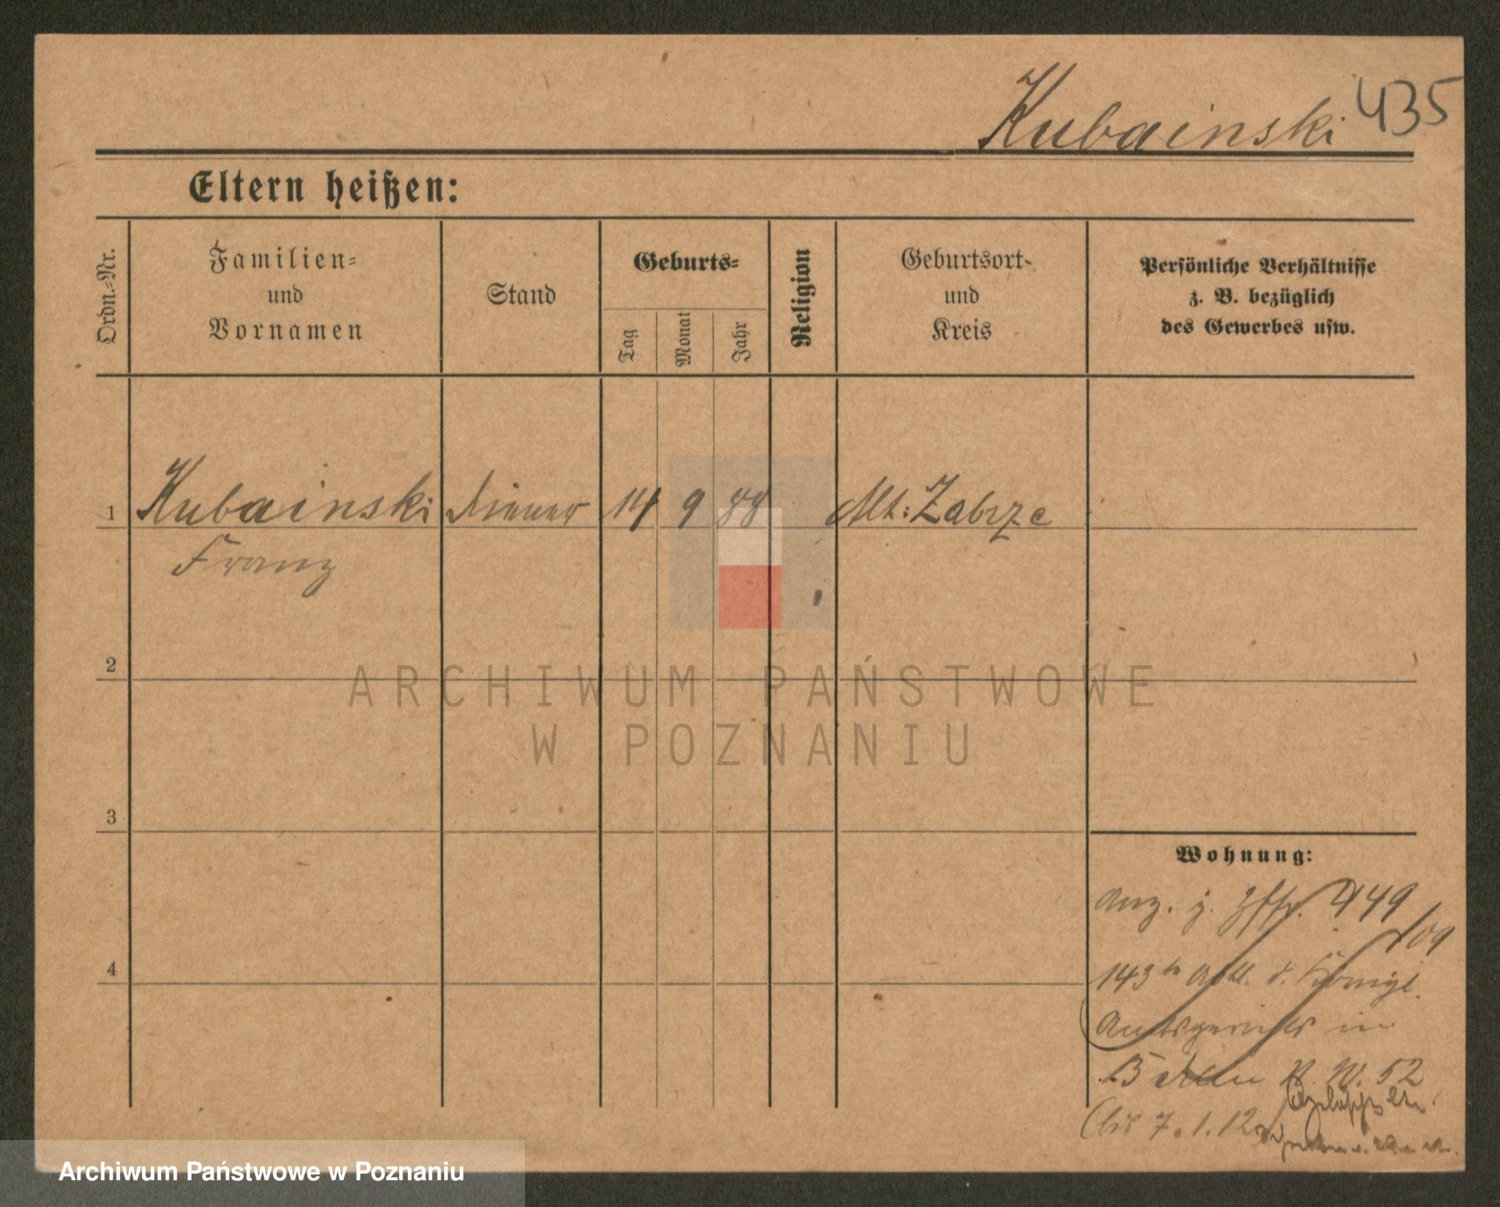 Kubainski 435
Eltern heißen:
Ordn.-Nr.
Familien-
und
Vornamen
Stand
Geburts-
Tag
Monat
Jahr
Religion
Geburtsort-
und
Kreis
Persönliche Verhältnisse
z. B. bezüglich
des Gewerbes usw.
1 Kubainski Diener 14 9 88 Alt: Zabrze
Franz
2
ARCHIWUM PAŃSTWOWE
W POZNANIU
3
Wohnung:
449
/09
4
143 Abtl. d. Königl.
Amtsgerichts in
Berlin N. W. 52
(bis 7.1.12
Archiwum Państwowe w Poznaniu